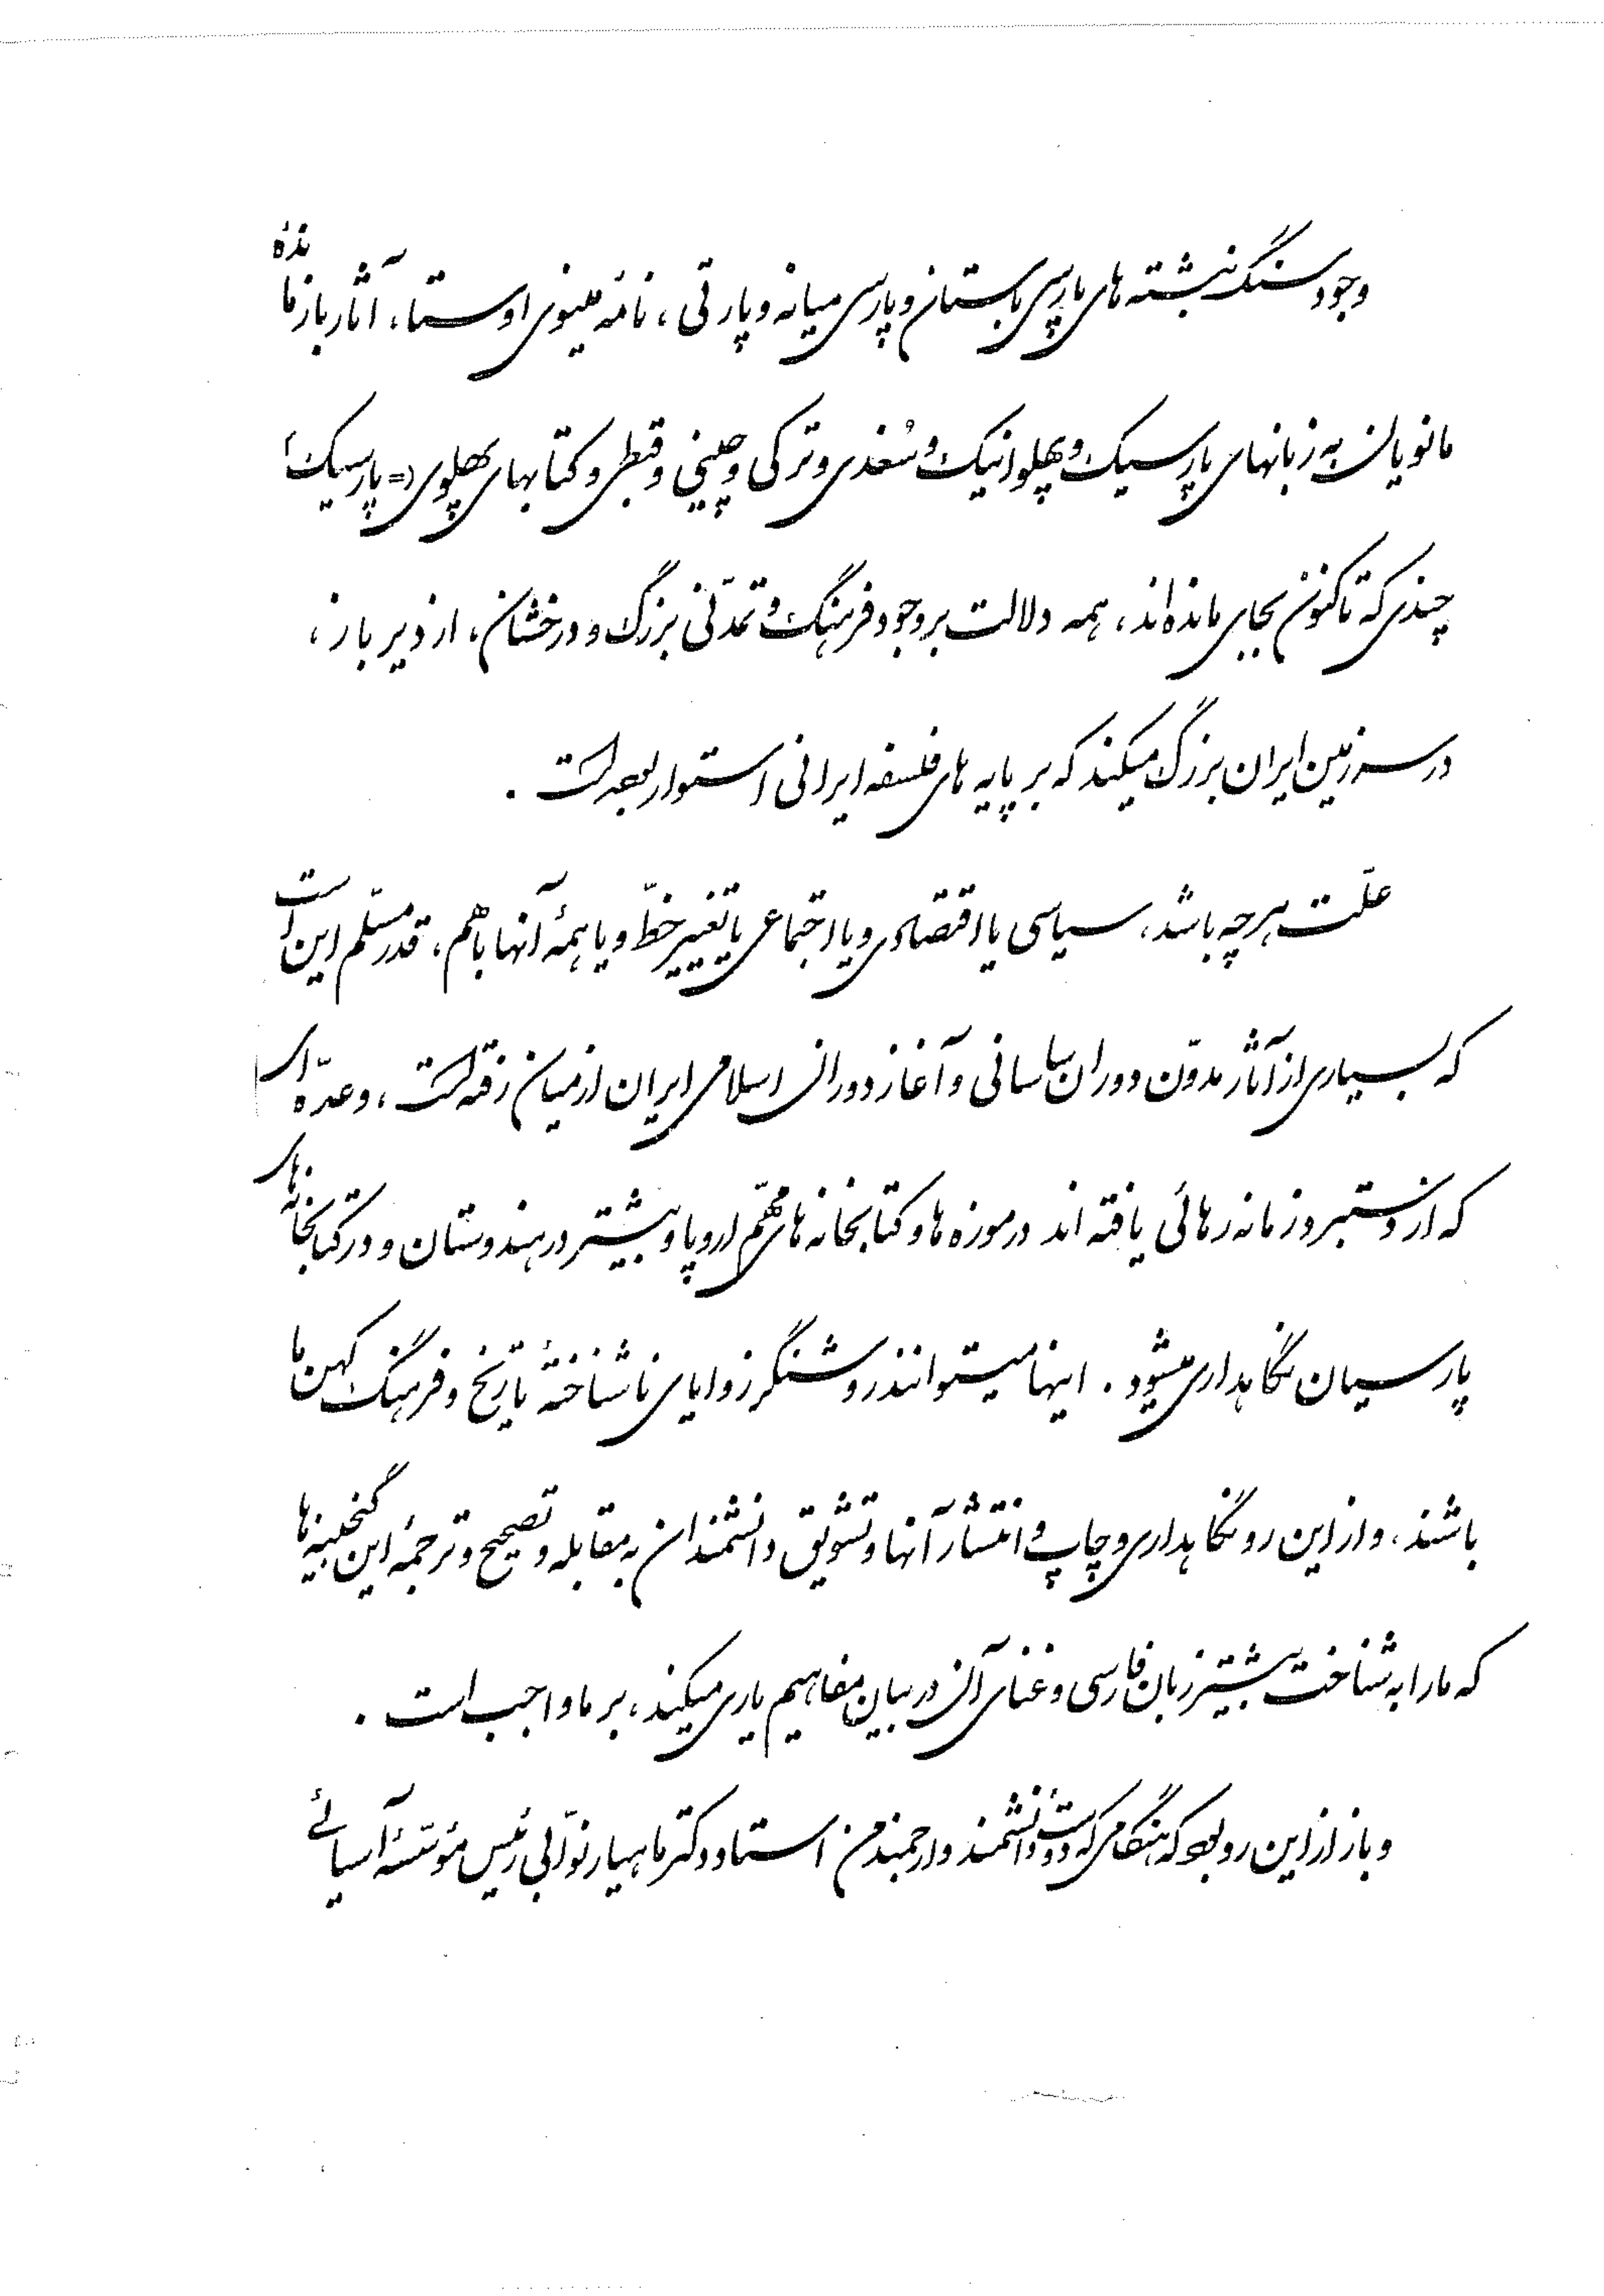 وجود سنگ نبشته های پارسی باستان و پارسی میانه و پارتی، نامهٔ مینوی اوستا، آثار بازماندهٔ
مانویان به زبانهای پارسیک و پهلوانیک و سُغدی و ترکی و چینی و قبطی و کتابهای پهلوی (= پارسیک)
چندی که تاکنون بجای مانده‌اند، همه دلالت بر وجود فرهنگ و تمدّنی بزرگ و درخشان، از دیر باز،
در سرزمین ایران بزرگ میکند که بر پایه های فلسفه ایرانی استوار بوده است.
علّت هر چه باشد، سیاسی یا اقتصادی و یا اجتماعی یا تغییر خطّ و یا همهٔ آنها با هم، قدر مسلّم این است
که بسیاری از آثار مدوّن دوران ساسانی و آغاز دوران اسلامی ایران از میان رفته است، و عدّه ای
که از دستبرد زمانه رهائی یافته اند در موزه ها و کتابخانه های مهّم اروپا و بیشتر در هندوستان و در کتابخانه های
پارسیان نگاهداری میشود. اینها میتوانند روشنگر زوایای ناشناختهٔ تاریخ و فرهنگ کهن ما
باشند، و از این رو نگاهداری و چاپ و انتشار آنها و تشویق دانشمندان به مقابله و تصحیح و ترجمهٔ این گنجینه ها
که ما را به شناخت بیشتر زبان فارسی و غنای آن در بیان مفاهیم یاری میکند، بر ما واجب است.
و باز از این رو بود که هنگامی که دوست دانشمند و ارجمند من استاد دکتر ماهیار نوّابی رئیس مؤسّسهٔ آسیائی